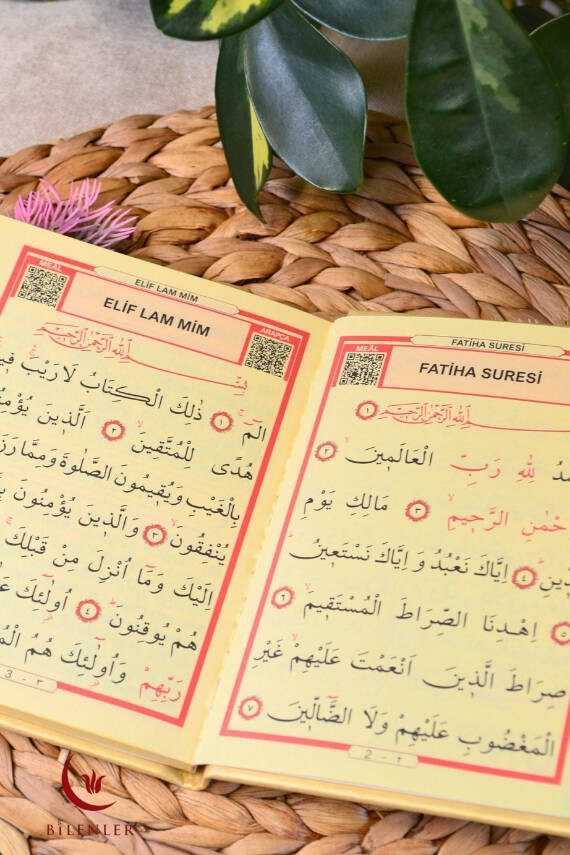 FATİHA SURESİ
MEÂL
FATİHA SURESİ
بِسْمِ اللّٰهِ الرَّحْمٰنِ الرَّحِيمِ ١
لِلّٰهِ رَبِّ الْعَالَمِينَ ٢
الرَّحِيمِ ٣ مَالِكِ يَوْمِ
اِيَّاكَ نَعْبُدُ وَ اِيَّاكَ نَسْتَعِينُ ٤
٥ اِهْدِنَا الصِّرَاطَ الْمُسْتَقِيمَ ٦
صِرَاطَ الَّذِينَ اَنْعَمْتَ عَلَيْهِمْ غَيْرِ
الْمَغْضُوبِ عَلَيْهِمْ وَلَا الضَّالِّينَ ٧
2 - ٢
ELİF LAM MİM
MEÂL
ELİF LAM MİM
ARAPÇA
بِسْمِ اللّٰهِ الرَّحْمٰنِ الرَّحِيمِ
الٓمٓ ١ ذٰلِكَ الْكِتَابُ لَا رَيْبَ
هُدًى لِلْمُتَّقِينَ ٢ اَلَّذِينَ
بِالْغَيْبِ وَيُقِيمُونَ الصَّلٰوةَ وَمِمَّا
يُنْفِقُونَ ٣ وَالَّذِينَ يُؤْمِنُونَ
اِلَيْكَ وَمَٓا اُنْزِلَ مِنْ قَبْلِكَ
هُمْ يُوقِنُونَ ٤ اُولٰٓئِكَ
رَبِّهِمْ وَاُولٰٓئِكَ هُمُ
3 - ٣
BİLENLER